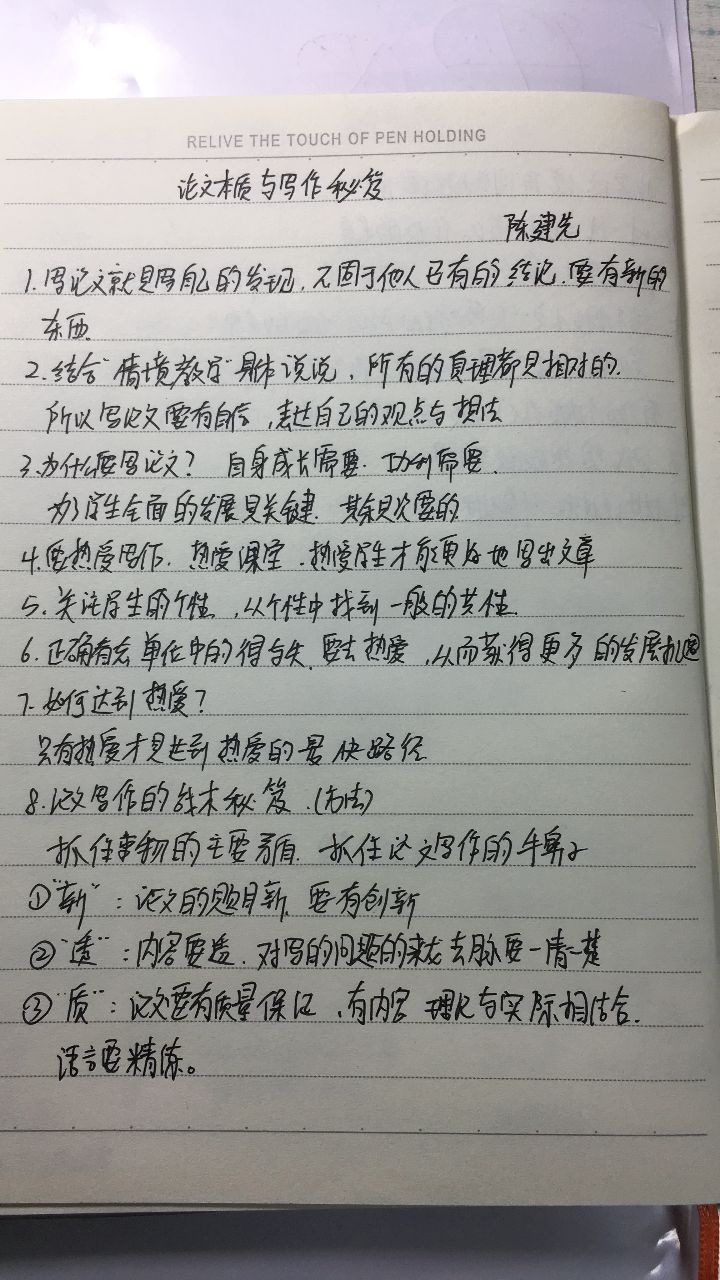 RELIVE THE TOUCH OF PEN HOLDING
论文本质与写作秘笈
陈建先
1.写论文就是写自己的发现,不囿于他人已有的结论.要有新的
东西.
2.结合"情境教学"具体说说,所有的真理都是相对的.
所以写论文要有自信,表达自己的观点与想法
3.为什么要写论文? 自身成长需要.功利需要.
为了学生全面的发展是关键.其余是次要的
4.要热爱写作.热爱课堂.热爱学生才能更好地写出文章
5.关注学生的个性,从个性中找到一般的共性.
6.正确看待单位中的得与失.要去热爱,从而获得更多的发展机遇
7.如何达到热爱?
只有热爱才是达到热爱的最快路径
8.论文写作的基本秘笈.(方法)
抓住事物的主要矛盾.抓住论文写作的牛鼻子
①"新":论文的题目新.要有创新
②"透":内容要透.对写的问题的来龙去脉要一清二楚
③"质":论文要有质量保证,有内容 理论与实际相结合.
语言要精练。